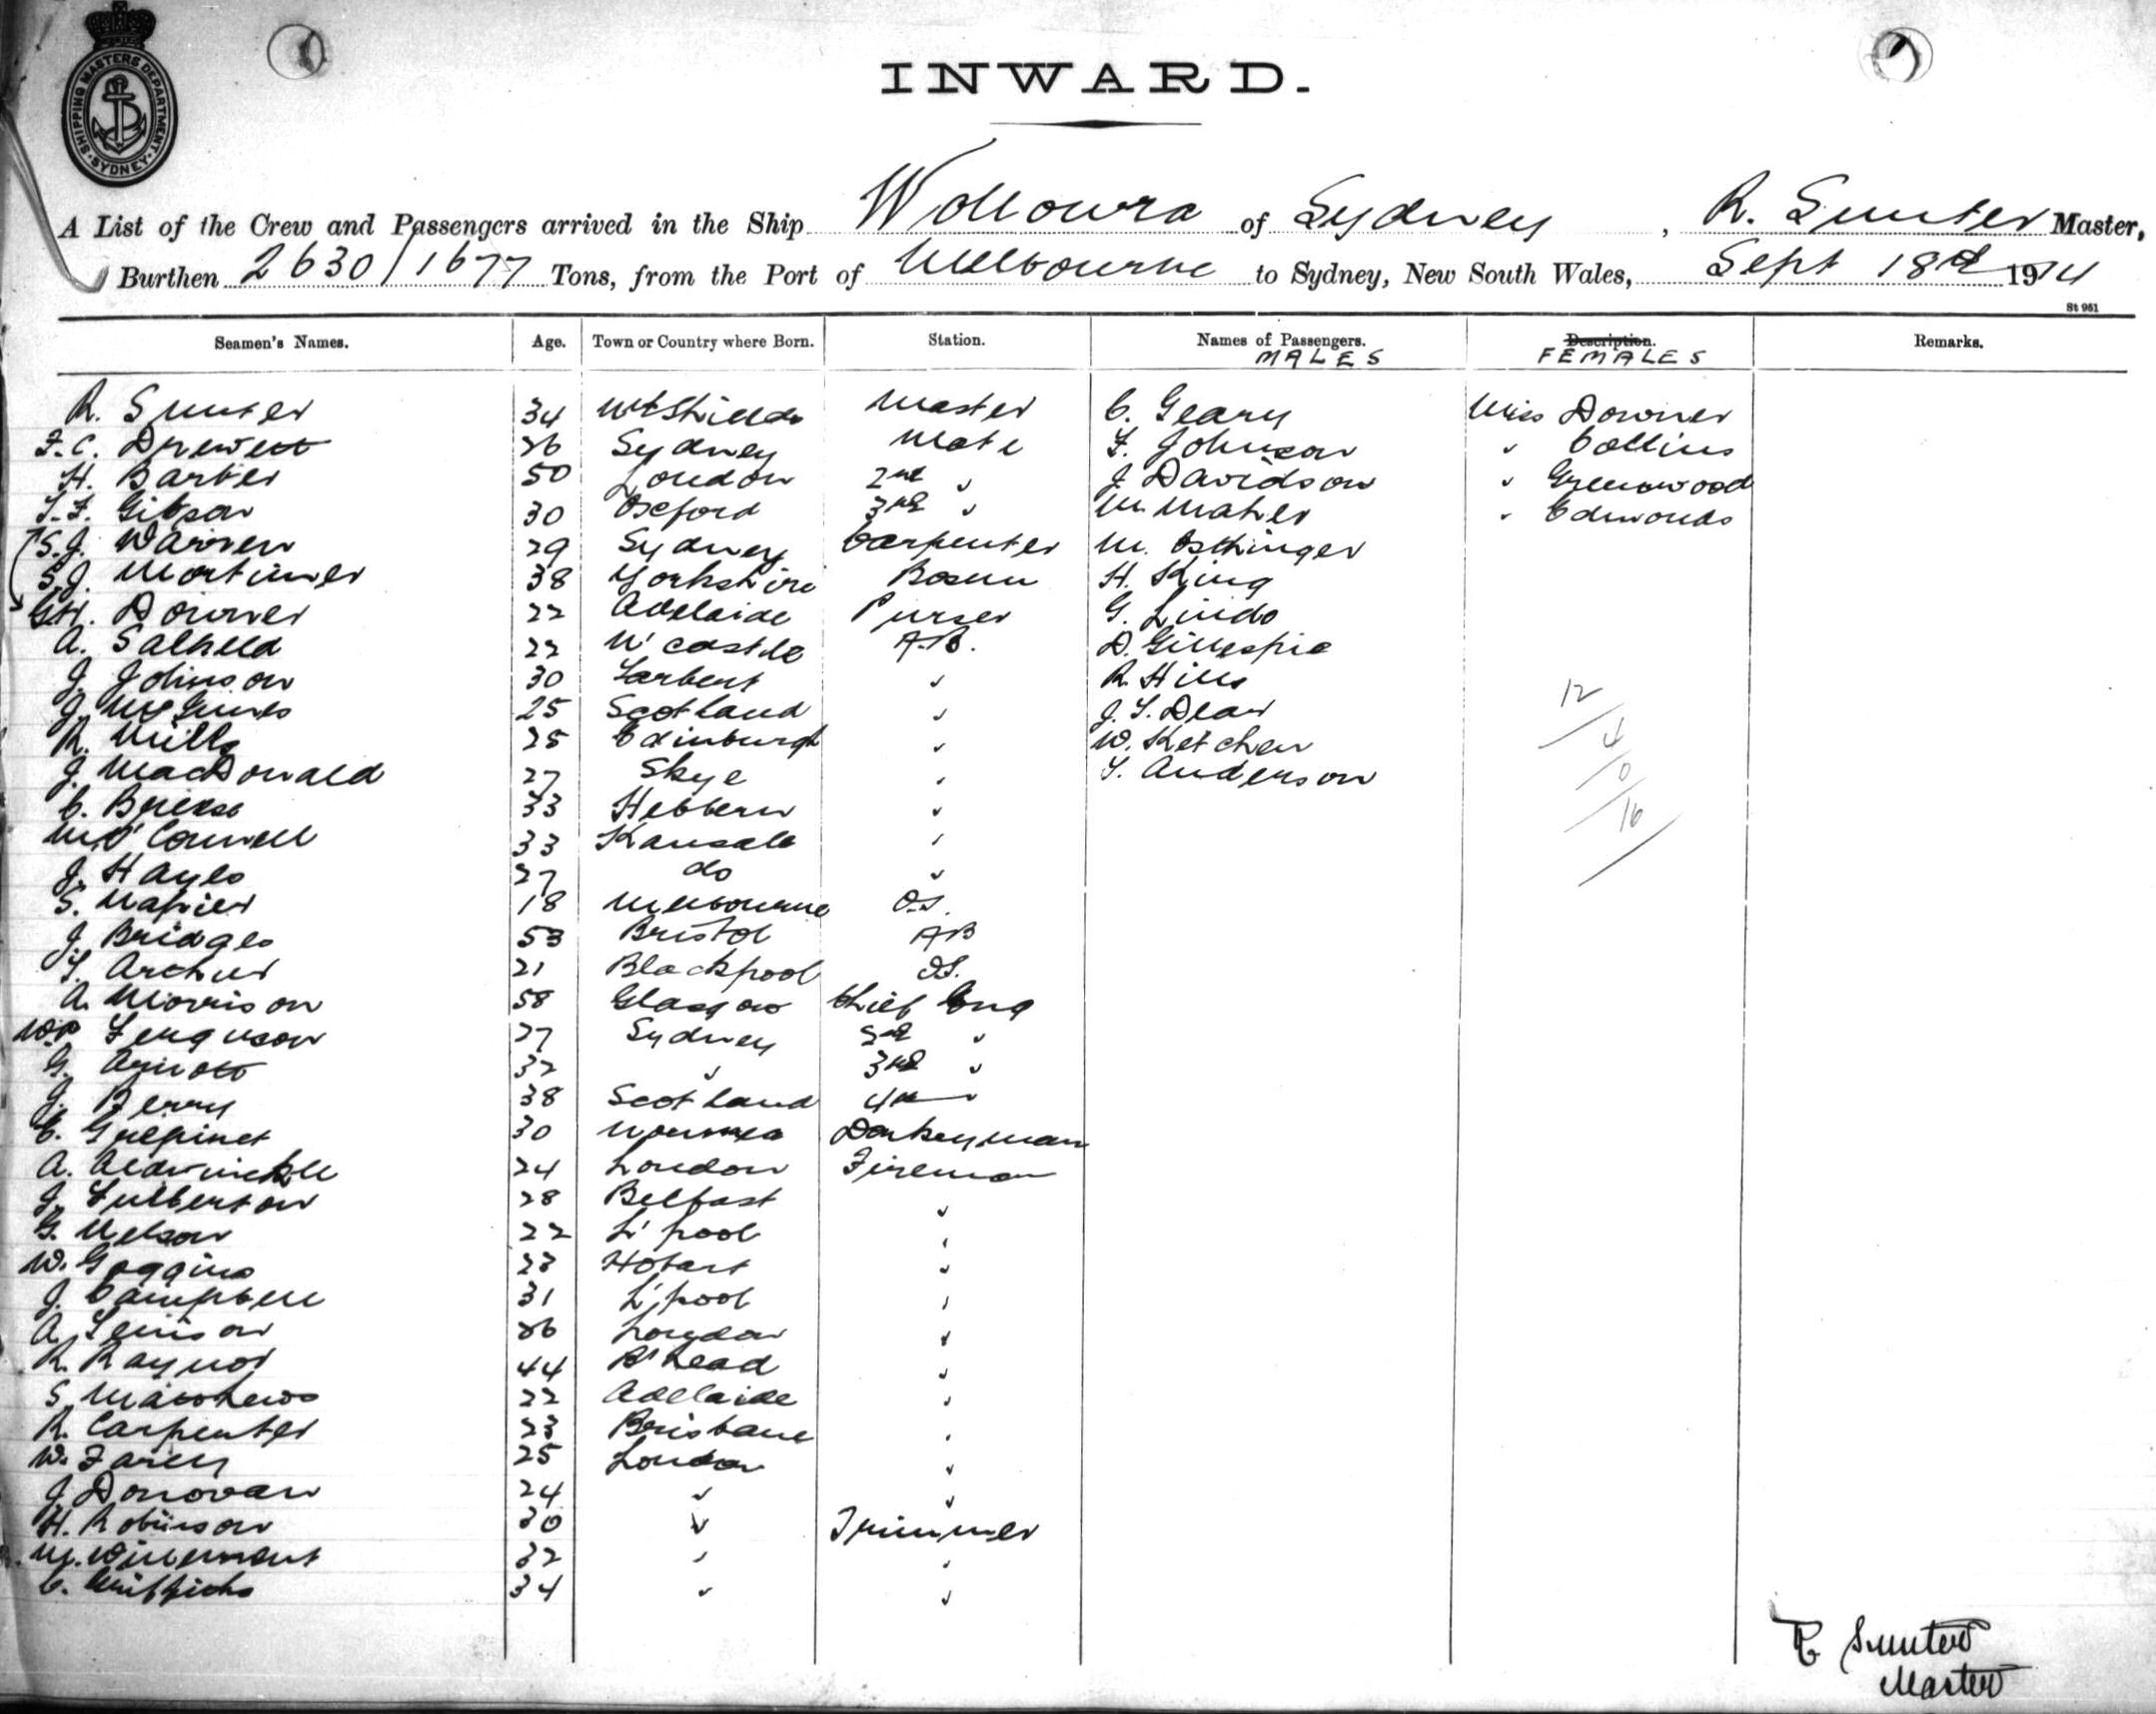 SHIPPING MASTERS DEPARTMENT. SYDNEY
INWARD.
A List of the Crew and Passengers arrived in the Ship Wollowra of Sydney, R. Sunter Master,
Burthen 2630/1677 Tons, from the Port of Melbourne to Sydney, New South Wales, Sept 18th 1914
St 951
Seamen's Names. Age. Town or Country where Born. Station. Names of Passengers. Description. Remarks.
MALES FEMALES
R. Sunter 34 Nth Shields Master C. Geary Miss Downer
F. C. Drewett 36 Sydney Mate F. Johnson " Collins
H. Barber 50 London 2nd " J Davidson " Greenwood
T. F. Gibson 30 Oxford 3rd " M. Maher " Edmonds
S. J. Warren 29 Sydney Carpenter M.
S. J. Mortimer 38 Yorkshire Bosun H. King
G H. Downer 22 Adelaide Purser G. Lindo
A. Salkeld 22 N'castle A.B. D. Gillespie
J. Johnson 30 " R. Hills
J. 25 Scotland " J. T. Dear
R. Mills 25 Edinburgh " W. Ketchen
J. MacDonald 27 Skye " T. Anderson
C. 33 Hebbern "
M. O'Connell 33 Kansale "
J. Hayes 27 do "
S. Napier 18 Melbourne O.S.
J. Bridges 53 Bristol AB
T. Archer 21 Blackpool O.S.
A. Morrison 58 Glasgow Chief Eng
W. P Ferguson 27 Sydney 2nd "
G. Arnott 32 " 3rd "
J. Berry 38 Scotland 4th "
C. 30 Donkeyman
A. Aldwinckle 24 London Fireman
J. Fulberton 28 Belfast "
G. Nelson 22 L'pool "
W. Goggins 23 Hobart "
J. Campbell 31 L'pool "
A. 36 London "
R. Raynor 44 B'head "
S. Matthews 22 Adelaide "
R. Carpenter 23 Brisbane "
W. Farley 25 London "
J Donovan 24 " "
H. Robinson 30 " Trimmer
M. Willement 32 " "
C. Griffiths 34 " "
12
4
0
16
R Sunter
Master